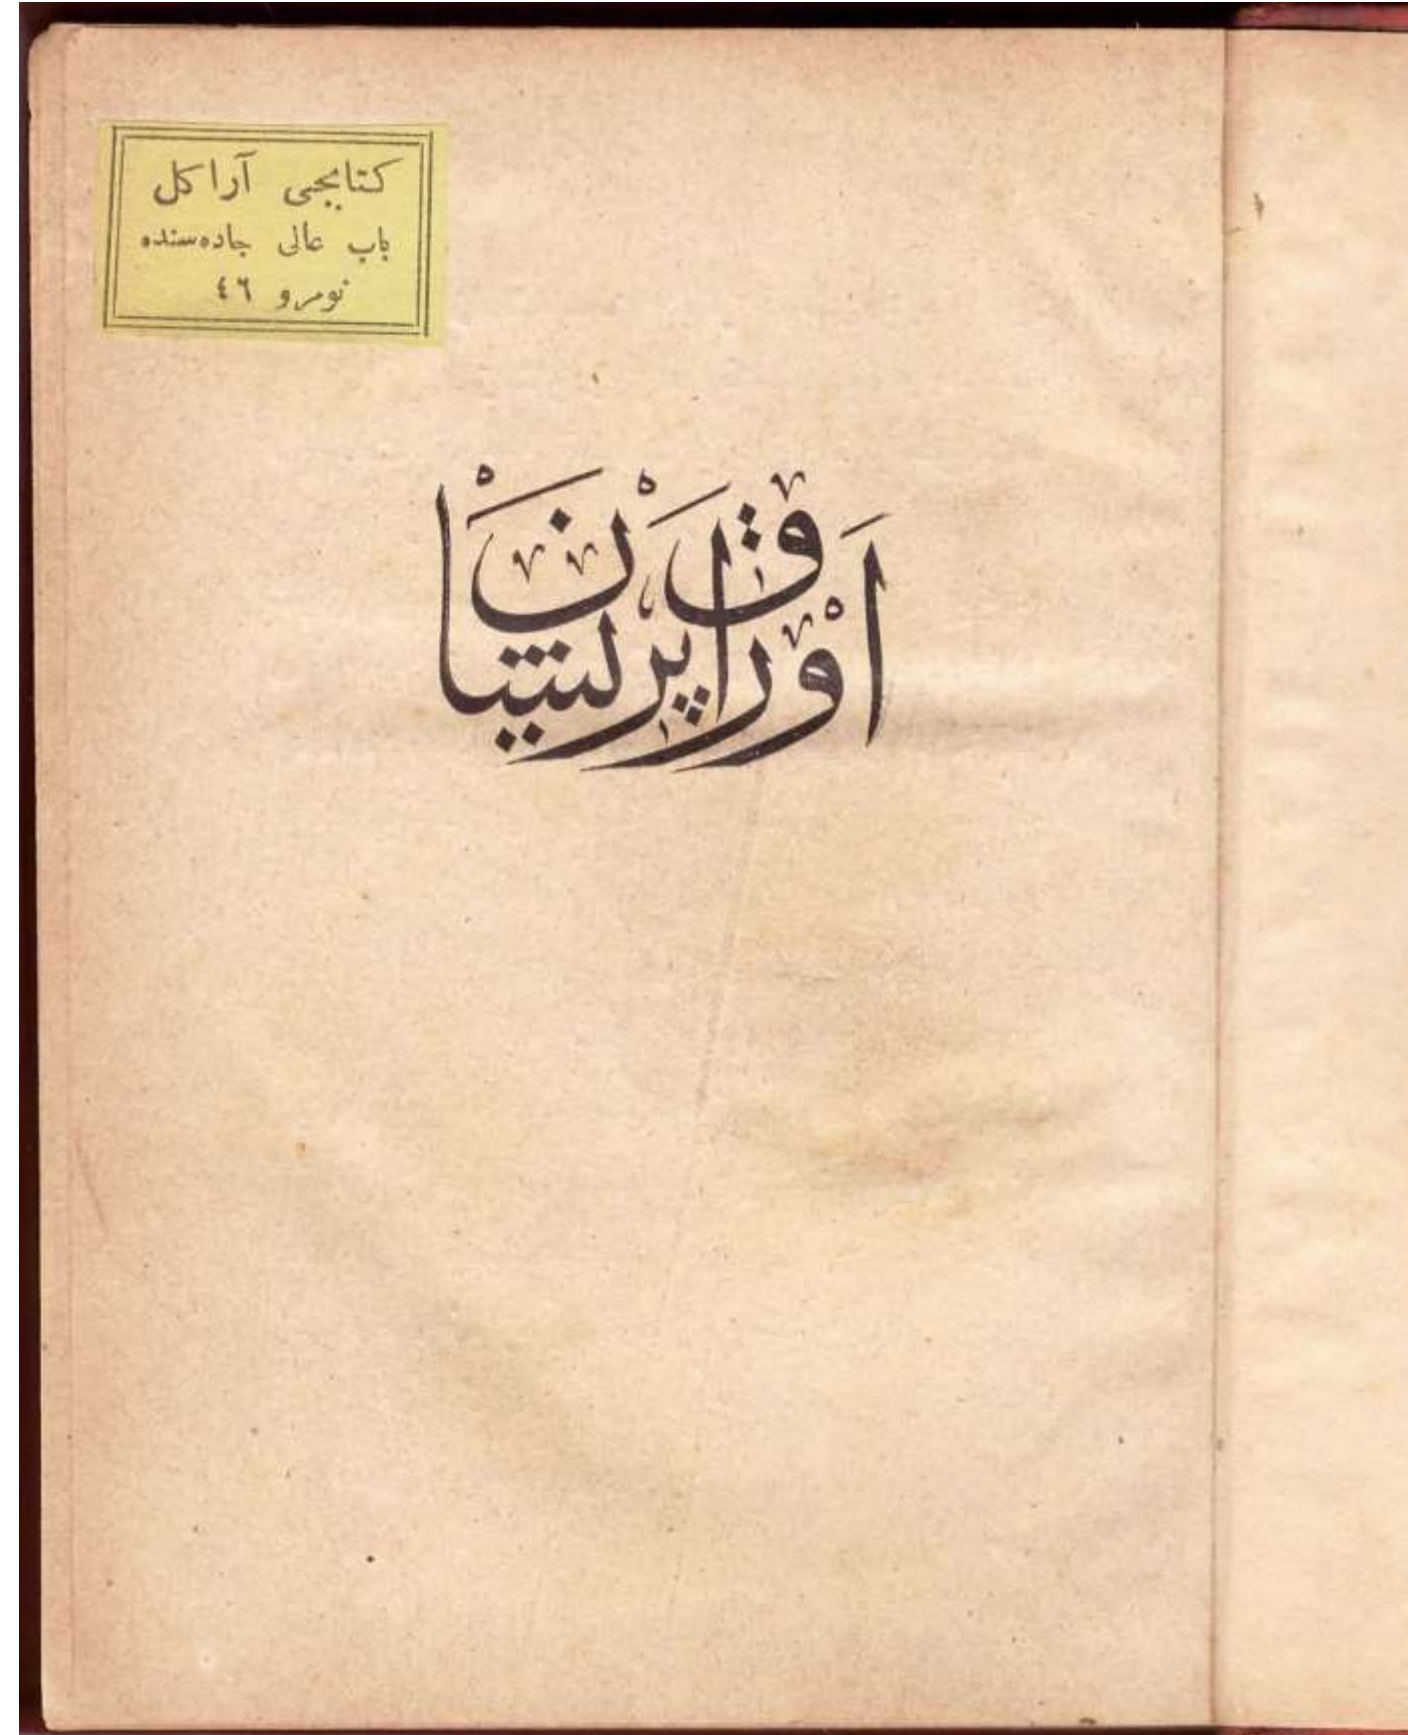 كتابجى آراكل
باب عالى جاده‌سنده
نومرو ٤٦
اَوْرَاقِ پَرِيشَانْ